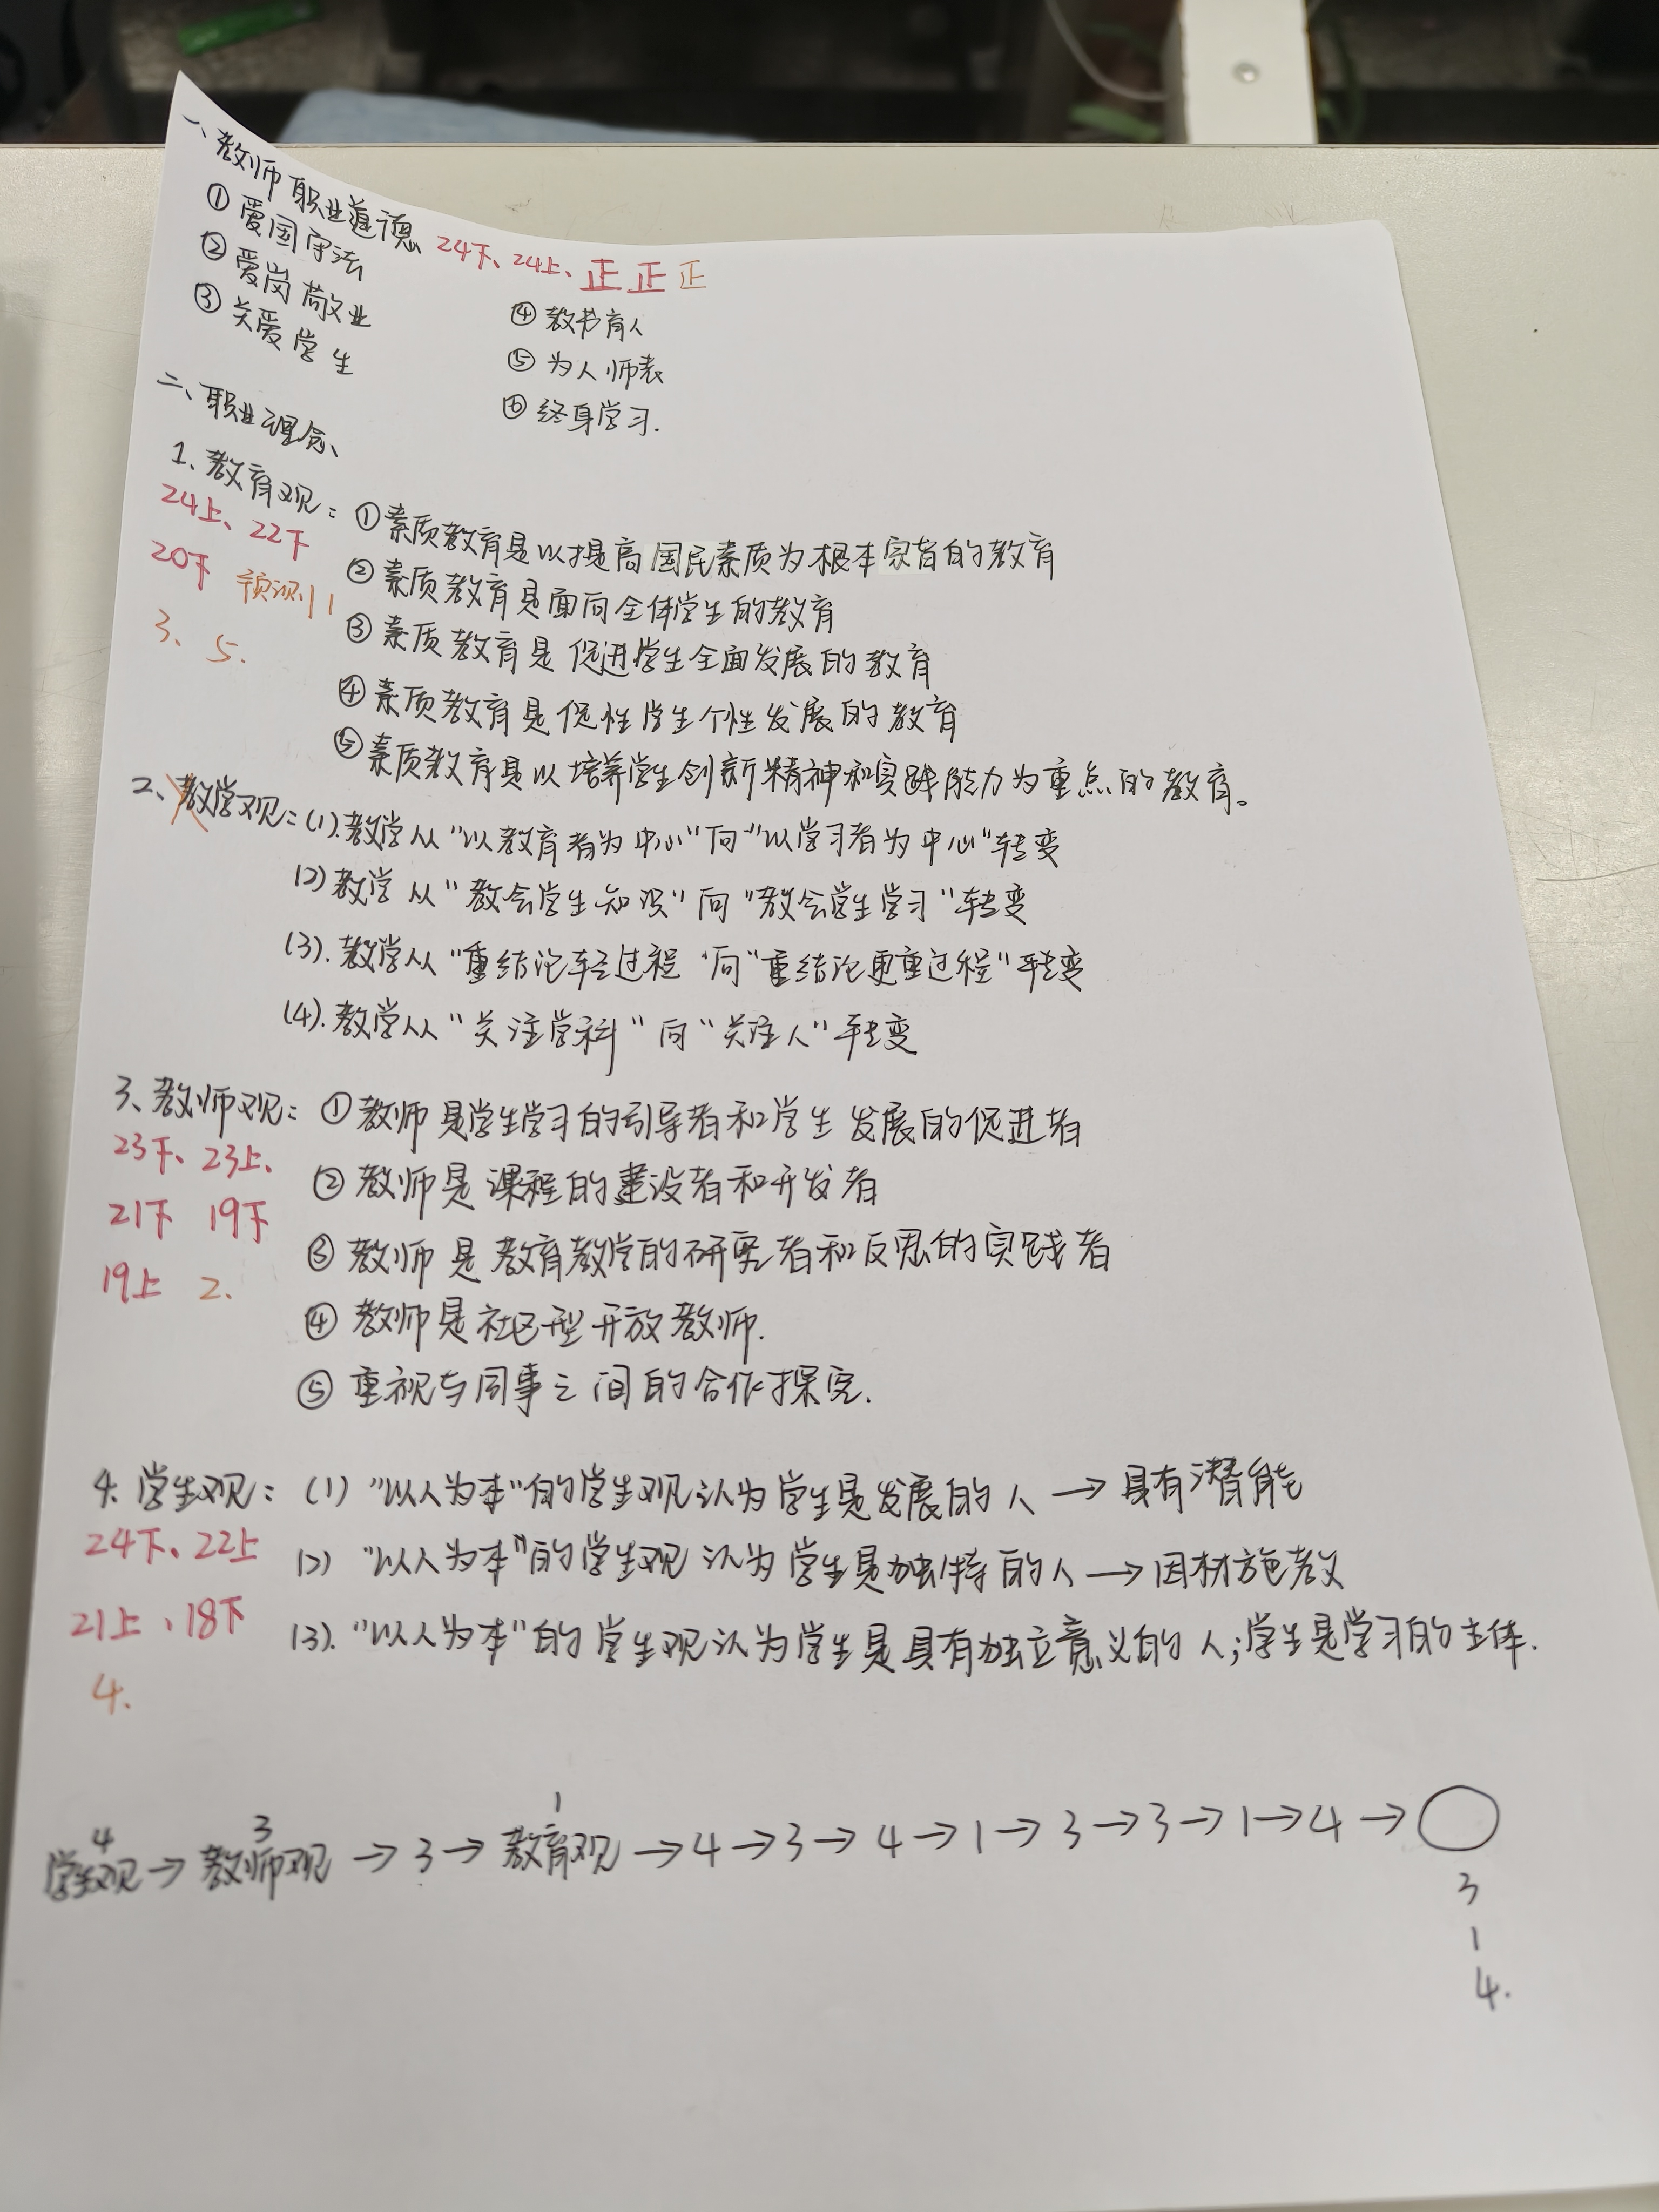 一、教师职业道德 24下、24上、正 正 正
① 爱国守法
② 爱岗敬业
③ 关爱学生
④ 教书育人
⑤ 为人师表
⑥ 终身学习.
二、职业理念、
1、教育观：① 素质教育是以提高国民素质为根本宗旨的教育
24上、22下
② 素质教育是面向全体学生的教育
20下 预测1
③ 素质教育是促进学生全面发展的教育
3、5.
④ 素质教育是促性学生个性发展的教育
⑤ 素质教育是以培养学生创新精神和实践能力为重点的教育。
2、教学观：(1).教学从“以教育者为中心”向“以学习者为中心”转变
(2) 教学从“教会学生知识”向“教会学生学习”转变
(3). 教学从“重结论轻过程”向“重结论更重过程”转变
(4). 教学从“关注学科”向“关注人”转变
3、教师观：① 教师是学生学习的引导者和学生发展的促进者
23下、23上、
② 教师是课程的建设者和开发者
21下 19下
③ 教师是教育教学的研究者和反思的实践者
19上 2.
④ 教师是社区型开放教师.
⑤ 重视与同事之间的合作探究.
4. 学生观：(1) “以人为本”的学生观认为学生是发展的人 → 具有潜能
24下、22上
(2) “以人为本”的学生观认为学生是独特的人 → 因材施教
21上、18下
(3). “以人为本”的学生观认为学生是具有独立意义的人；学生是学习的主体.
4.
4 3 1
学生观 → 教师观 → 3 → 教育观 → 4 → 3 → 4 → 1 → 3 → 3 → 1 → 4 → ○
3
1
4.